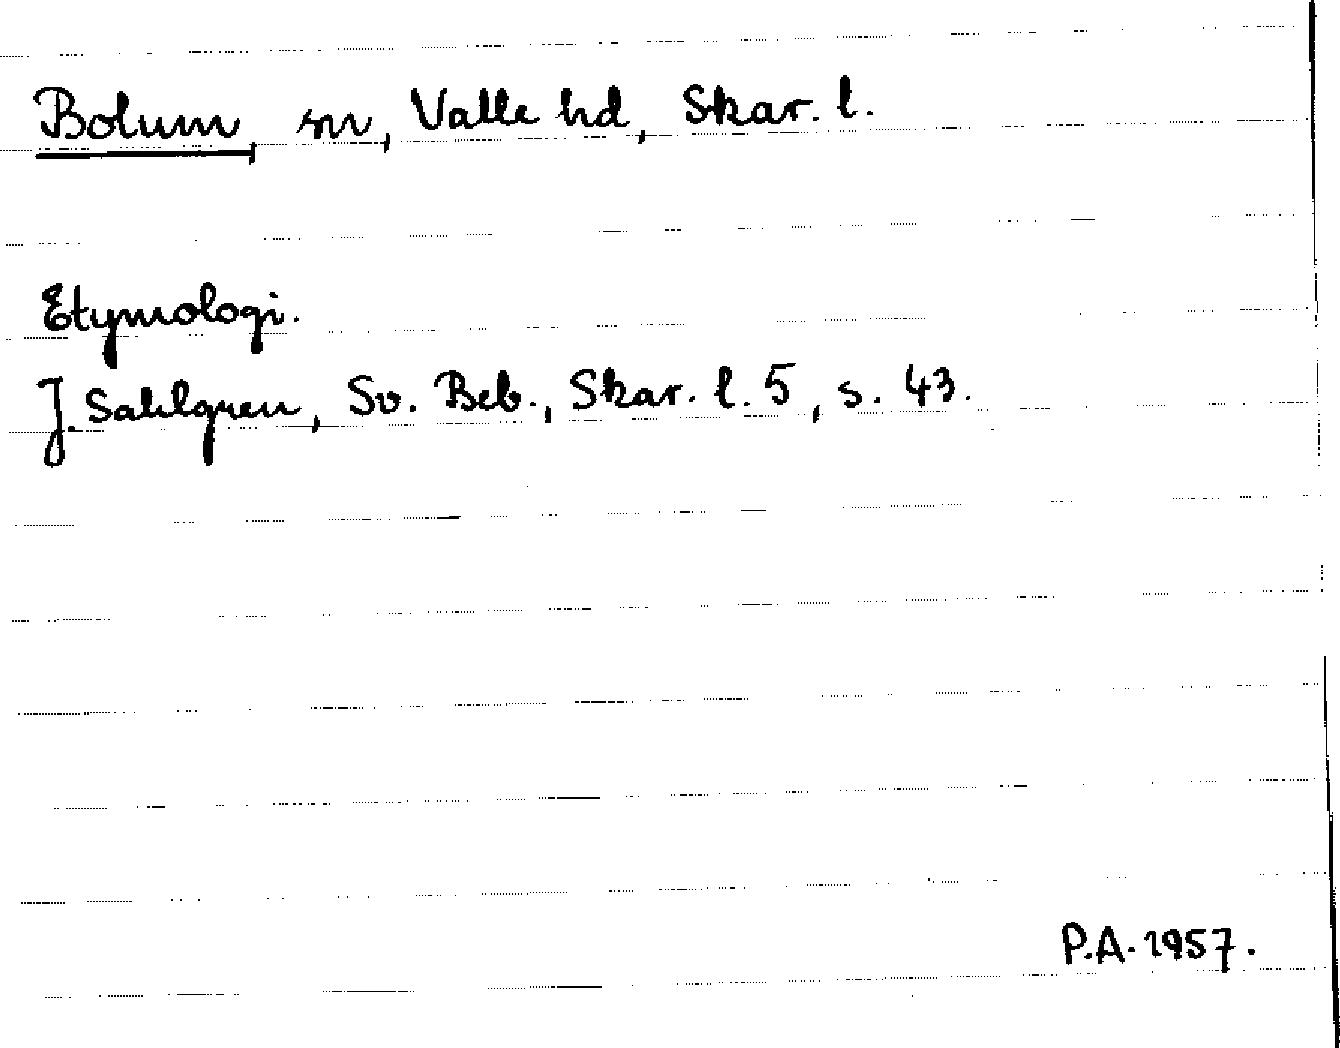 Bolum, sn, Valle hd, Skar. l.
Etymologi.
J. Sahlgren, Sv. Beb., Skar. l. 5, s. 43.
P.A. 1957.